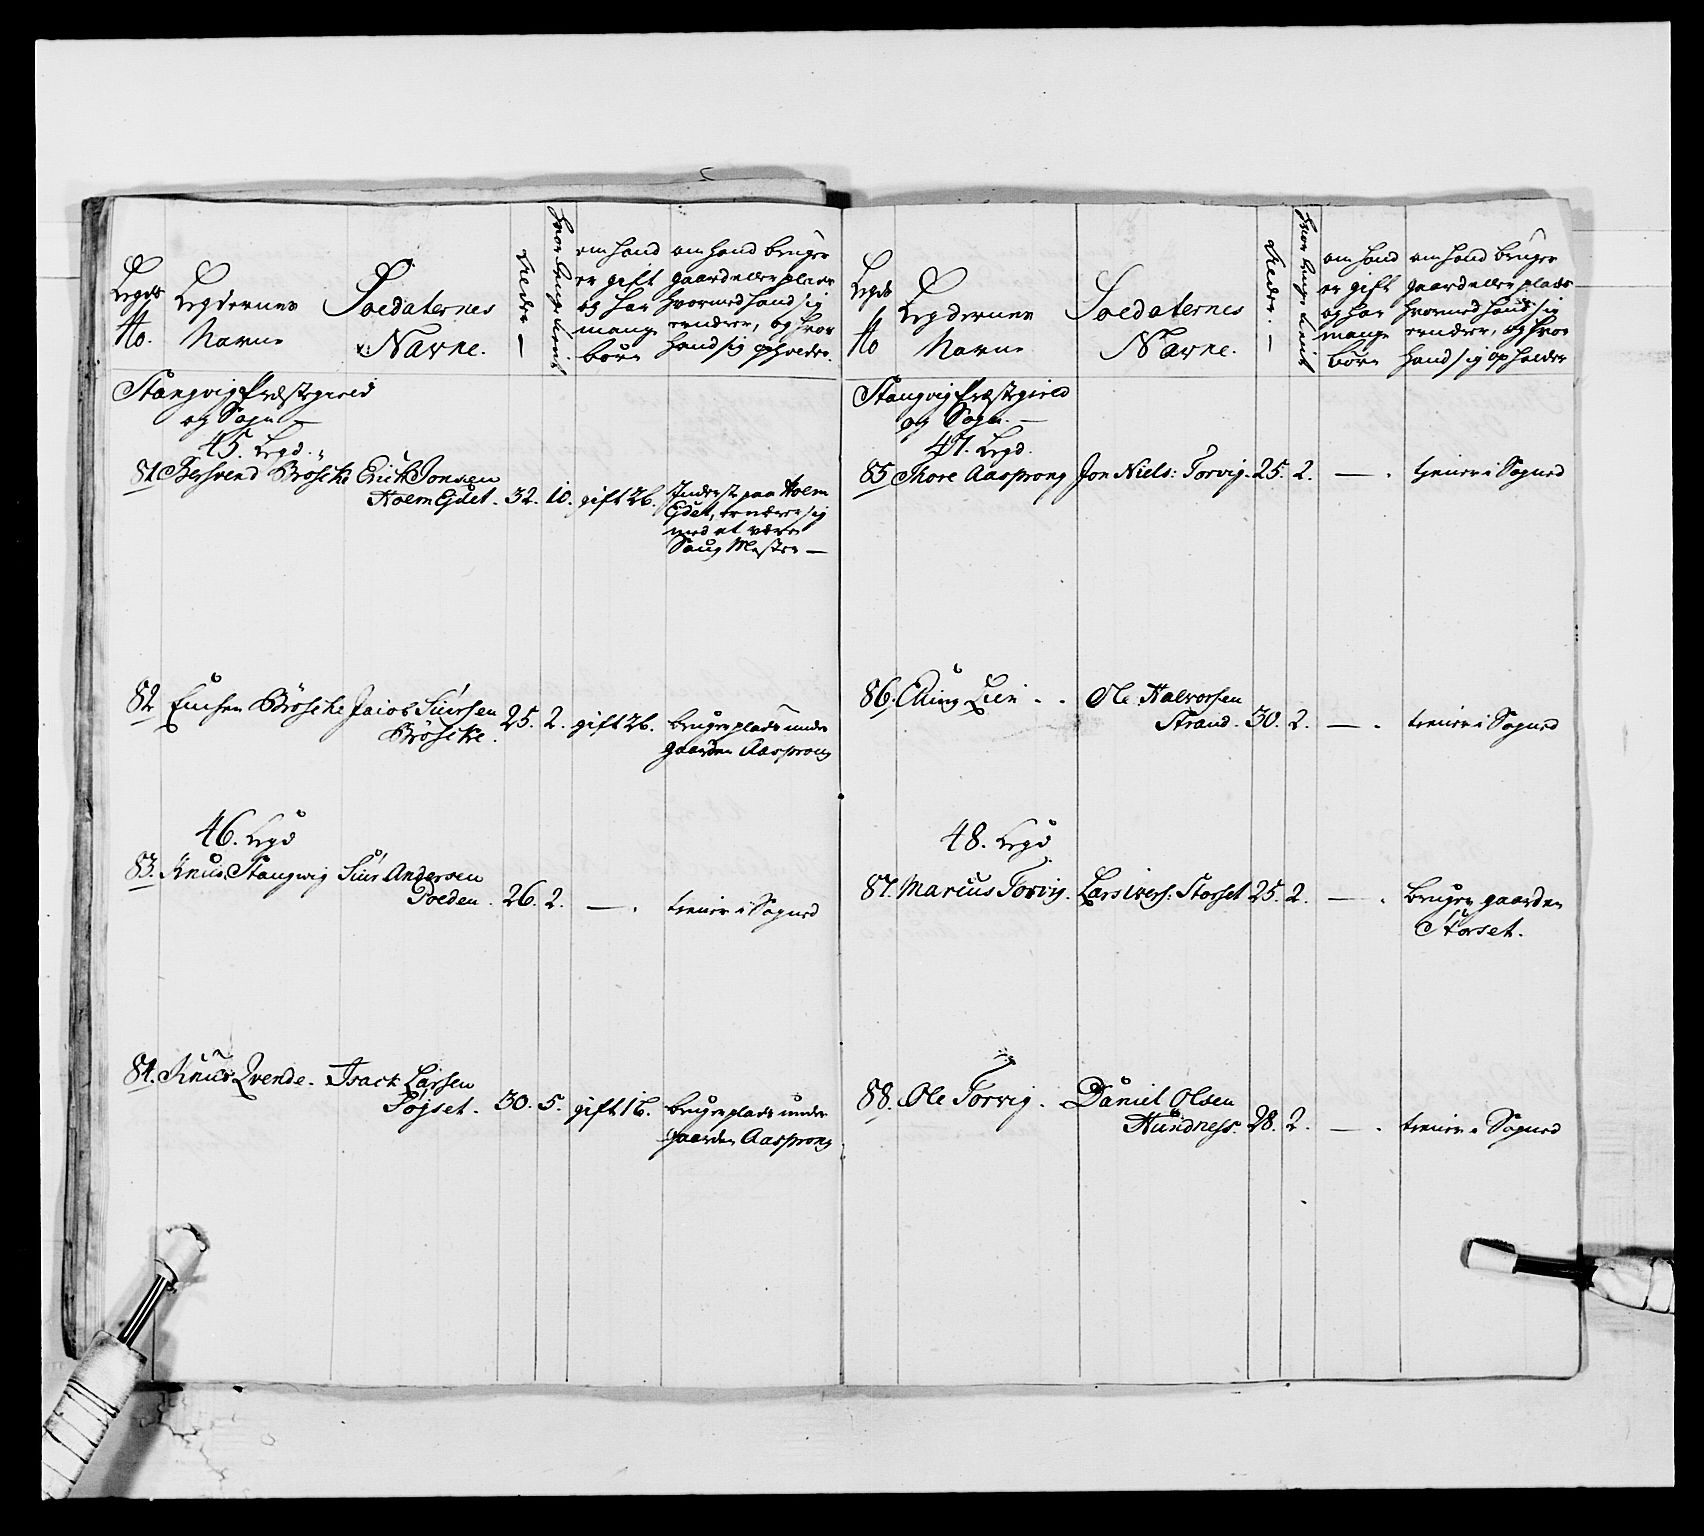 Legds
No.
Legdernes
Navne
Soldaternes
Navne.
Alder
hvor lenge tient
om hand
er gift
og har
mange
börn
om hand bruger
gaard eller plads
hvormed hand sig
ernærer, og hvor
hand sig opholder.
Stangvig Præstegield
og Sogn
45. Legd.
81. Bersvend Bröscke Erich Jonsen
Holm Eydet. 32. 10. gift 2b. Inderst paa Holm
Eydet, ernærer sig
med at være
Saug Mester
82 Bröscke Jacob Siursen
Bröscke. 25. 2. gift 2b. bruger plads under
gaarden Aasprong
46. Legd
83. Knud Stangvig Siur Andersen
Poeden. 26. 2. — . tiener i Sogned
84. Knud Qvende. Isack Larsen
Söyset. 30. 5. gift 1b. bruger plads under
gaarden Aasprong
Legds
No
Legdernes
Navne
Soldaternes
Navne.
Alder.
hvor lenge tient
om hand
er gift
og har
mange
börn
om hand bruger
gaard eller plads
hvormed hand sig
ernærer, og hvor
hand sig opholder
Stangvig Præstegield
og Sogn.
47. Legd.
85 Thore Aasprong Jon Niels: Torvig. 25. 2. — . tiener i Sogned
86. Elling Lien . . Ole Halvorsen
Strand. 30. 2. — . tiener i Sogned
48. Legd
87. Marcus Torvig. Lars Ivers: Storset 25. 2. — . bruger gaarden
Storset.
88. Ole Torvig. Daniel Olsen
Hundness. 28. 2. — . tiener i Sogned